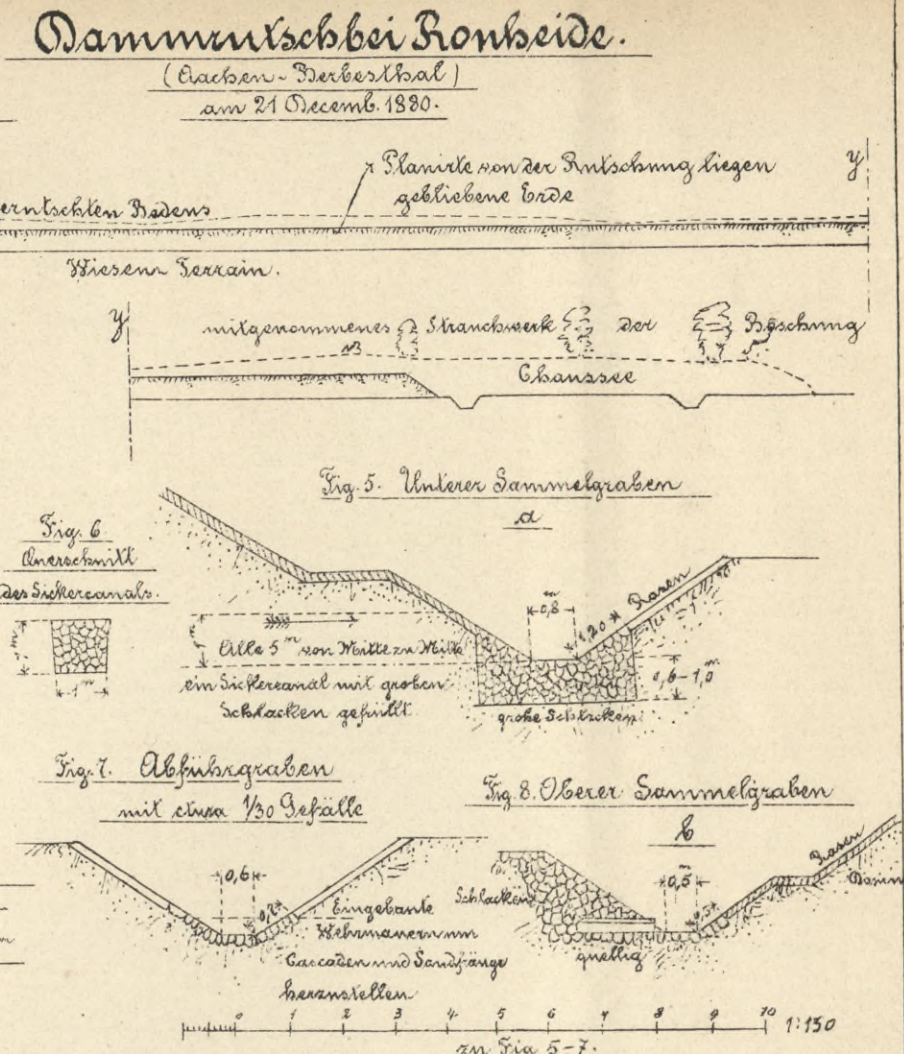 Dammrutsch bei Ronheide.
(Aachen-Herbesthal)
am 21 Decemb. 1880.
Planirte von der Rutschung liegen
gebliebene Erde
y
Bodens
Wiesen Terrain.
y
mitgenommenes Strauchwerk der Böschung
Chaussee
Fig. 5. Unterer Sammelgraben
a
Fig. 6.
Querschnitt
des Sickercanals.
1 m
Alle 5 m von Mitte zu Mitte
ein Sickercanal mit groben
Schlacken gefüllt.
m
0,8
1,20
Rasen
0,6-1,0 m
grobe Schlacken
Fig. 7. Abfuhrgraben
mit etwa 1/30 Gefälle
0,6
Eingebaute
Wehrmauern um
Cascaden und Sandfänge
herzustellen
Fig. 8. Oberer Sammelgraben
b
Schlacken
m
0,5
0,5
Rasen
quellig
0 1 2 3 4 5 6 7 8 9 10 1:150
zu Fig 5-7.